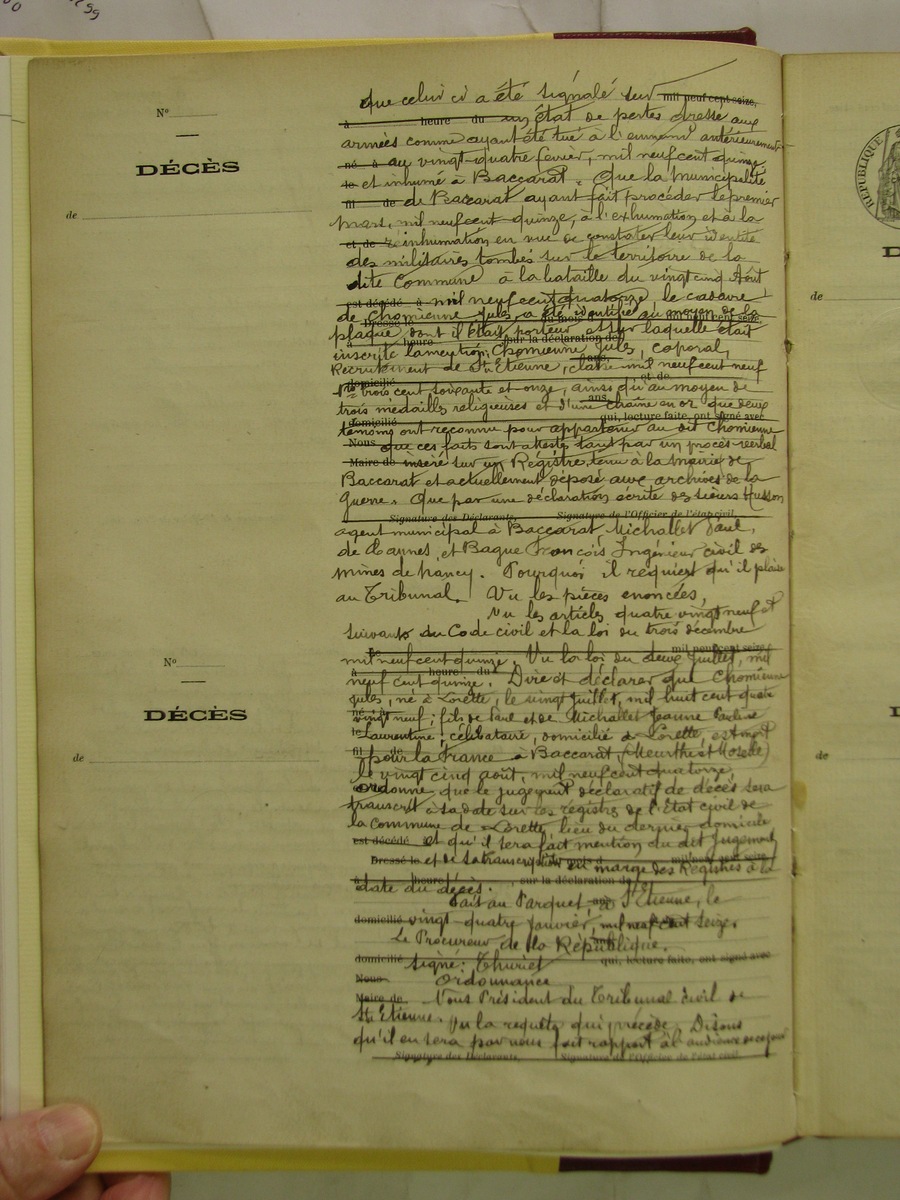 que celui ci a été signalé sur mil neuf cent seize,
à heure du un état de pertes dressé aux
armées comme ayant été tué à l'ennemi antérieurement
né à au vingt-quatre fevrier, mil neuf cent quinze
le et inhumé à Baccarat. Que la municipalité
fil de de Baccarat ayant fait procéder le premier
mars, mil neuf cent quinze, à l'exhumation et à la
et de réinhumation en vue de constater leur identité
des militaires tombés sur le territoire de la
dite Commune à la bataille du vingt cinq Août
est décédé à mil neuf cent quatorze, le cadavre
de Chomienne Jules a été identifié au moyen de la
Dressé le du mois d mil neuf cent seize,
plaque dont il était porteur et sur laquelle était
à heure sur la déclaration de
inscrite la mention: Chomienne Jules, caporal,
Recrutement de St Etienne, classe mil neuf cent neuf
domicilié et de
No trois cent soixante et onze, ainsi qu'au moyen de
ans,
trois médailles religieuses et d'une chaîne en or que deux
domicilié qui, lecture faite, ont signé avec
témoins ont reconnu pour appartenir au dit Chomienne
Nous que ces faits sont attestés tant par un procès-verbal
Maire de inséré sur un Régistre tenu à la mairie de
Baccarat et actuellement déposé aux archives de la
Guerre. Que par une déclaration écrite des sieurs Husson
Signature des Déclarants, Signature de l'Officier de l'état civil,
agent municipal à Baccarat Michallet Paul,
de Cannes, et Bague François Ingénieur civil des
mines de Nancy. Pourquoi il requiert qu'il plaise
au Tribunal. Vu les pièces énoncées,
Vu les articles quatre vingt neuf et
suivants du Code civil et la loi du trois décembre
N°
DÉCÈS
de
Le mil neuf cent seize,
mil neuf cent quinze. Vu la loi du deux Juillet, mil
à heure du
neuf cent quinze. Dire et déclarer que Chomienne
Jules, né à Lorette, le vingt Juillet, mil huit cent quatre
né à
vingt neuf; fils de Paul et de Michallet Jeanne Pauline
le Laurentine; célibataire, domicilié à Lorette, est mort
fil de pour la France à Baccarat, (Meurthe et Moselle)
le vingt cinq août, mil neuf cent quatorze,
Ordonne que le jugement déclaratif de décès sera
transcrit à sa date sur les régistres de l'Etat civil de
la commune de Lorette, lieu du dernier domicile
est décédé et qu'il sera fait mention du dit Jugement
Dressé le et de sa transcription en marge des Régistres à la
à heure sur la déclaration de
date du décès.
Fait au Parquet, St Etienne, le
domicilié vingt-quatre Janvier, mil neuf cent seize.
Le Procureur de la République.
domicilié signé: Thuriet qui, lecture faite, ont signé avec
Nous Ordonnance
Maire de Nous Président du Tribunal civil de
St Etienne. Vu la requête qui précède. Disons
qu'il en sera par nous fait rapport à l'audience de ce jour
Signature des Déclarants, Signature de l'Officier de l'état civil,
N°
DÉCÈS
de
RÉPUBLIQUE
de
de